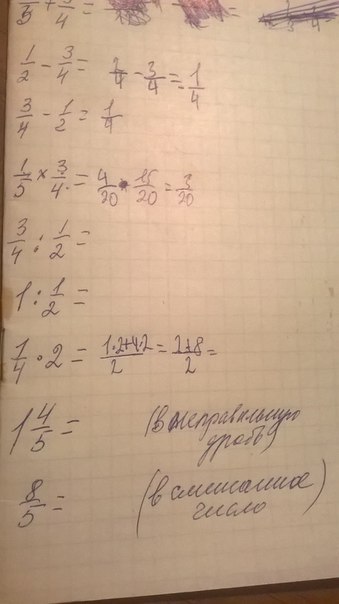 1/2 - 3/4 = 2/4 - 3/4 = -1/4
3/4 - 1/2 = 1/4
1/5 × 3/4 = 4/20 · 15/20 = 3/20
3/4 : 1/2 =
1 : 1/2 =
1/4 · 2 = 1·2+4·2/2 = 2+8/2 =
1 4/5 = (в неправильную
дробь)
8/5 = (в смешанное
число)